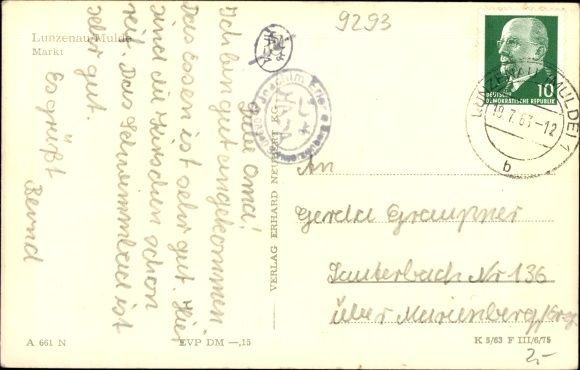 Lunzenau/Mulde
Markt
9293
Gute Oma!
Ich bin gut angekommen.
Das Essen ist sehr gut. Hier
sind die Kirschen schon
reif. Das Schwimmbad ist
sehr gut.
Es grüßt
Bernd
VERLAG ERHARD NEUBERT KG
10
DEUTSCHE
DEMOKRATISCHE REPUBLIK
LUNZENAU (MULDE) 1
19.7.63-12
b
An
Gerda Graupner
Lauterbach Nr 136
über Marienberg/Erzg.
A 661 N
EVP DM —,15
K 5/63 F III/6/75
2,-